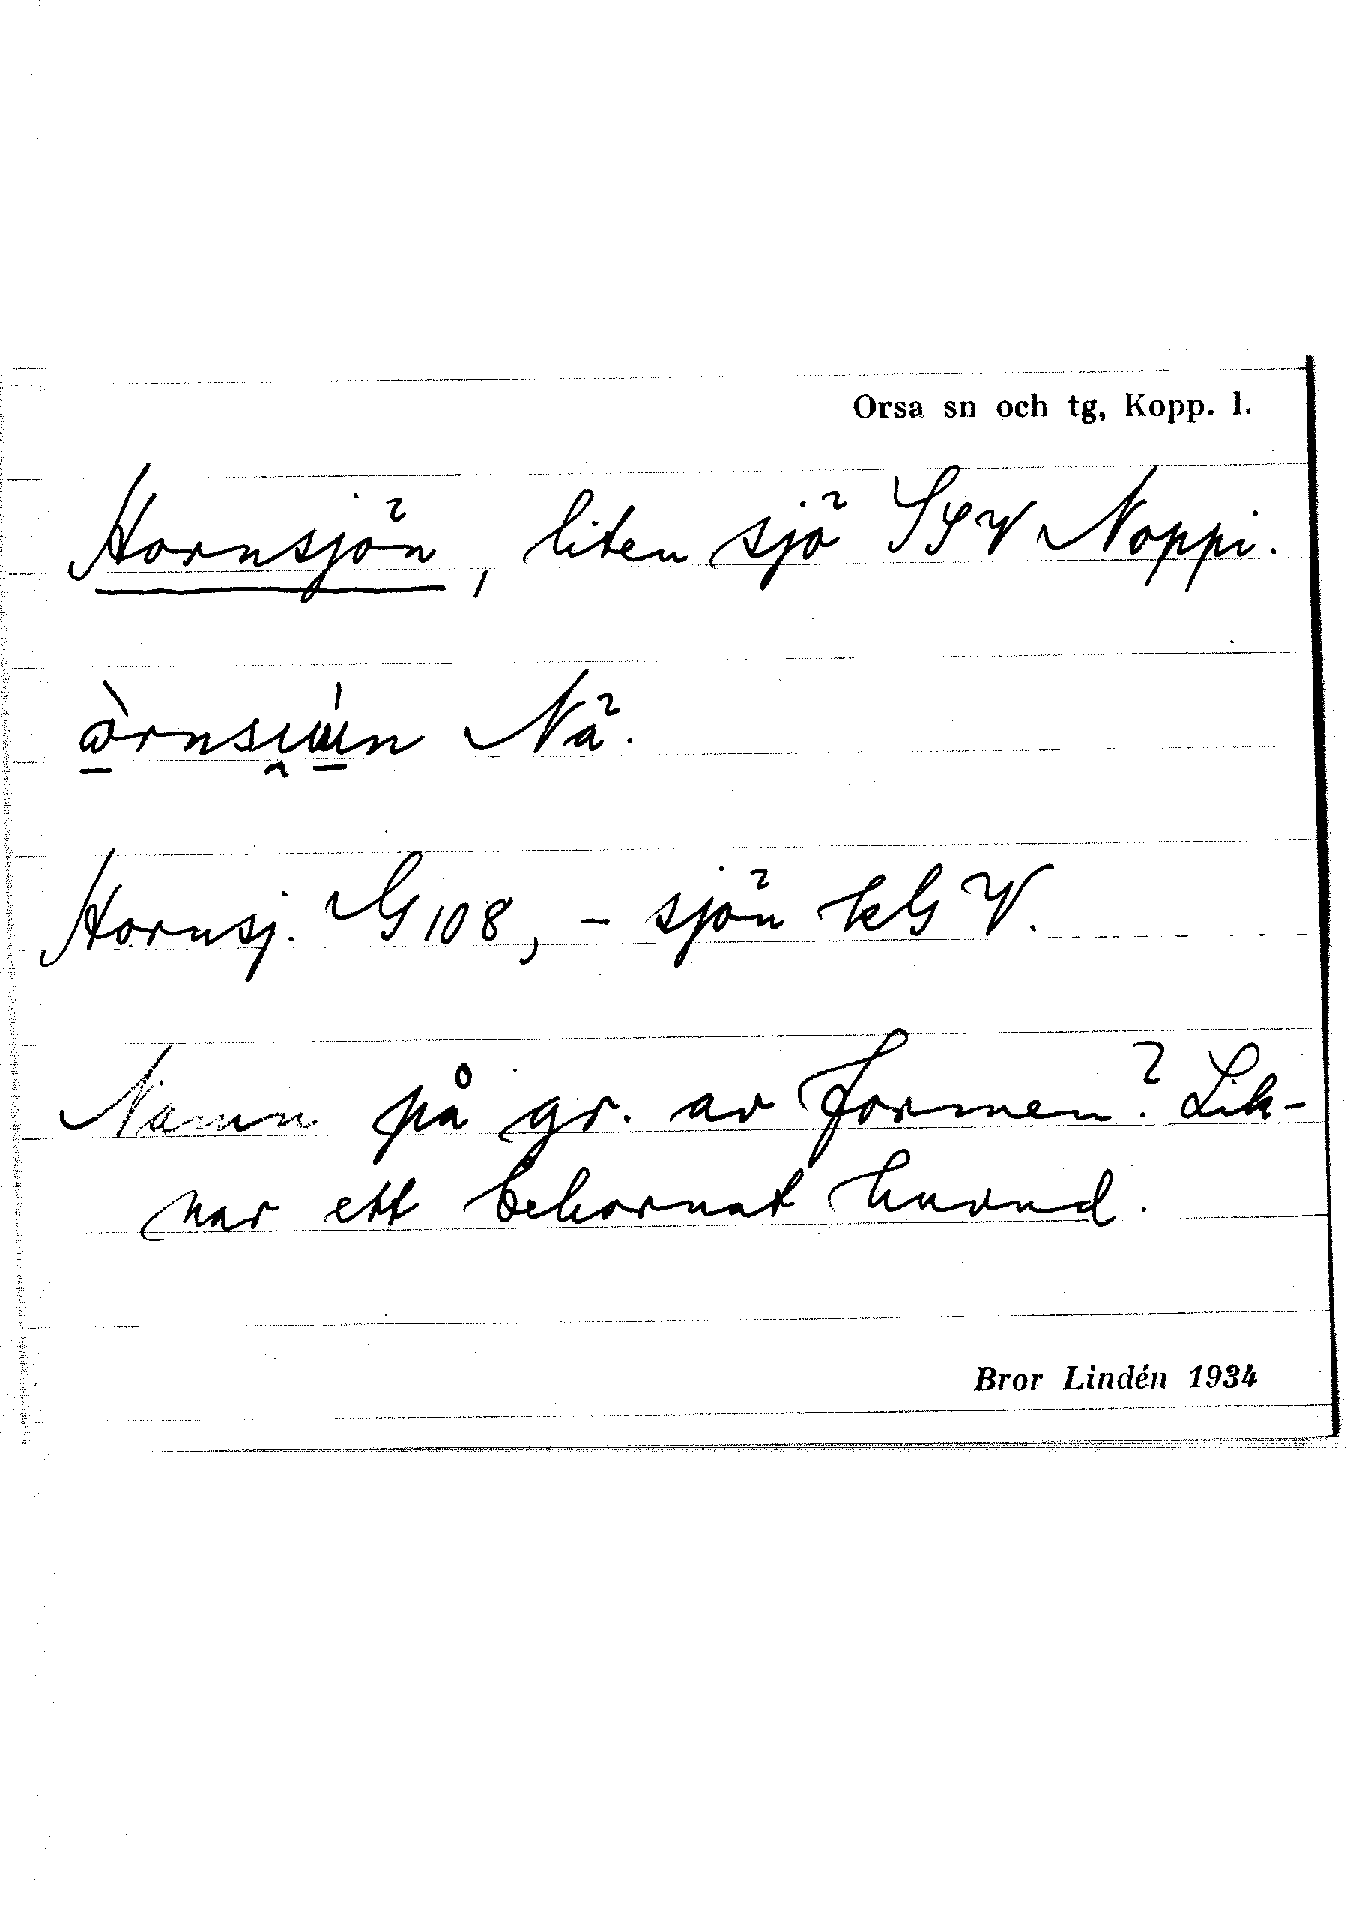 Orsa sn och tg, Kopp. l.
Hornsjön, liten sjö SSV Noppi.
Nä.
Hornsj. G 108, - sjön kG V.
Namn på gr. av formen? Lik-
nar ett behornat huvud.
Bror Lindén 1934